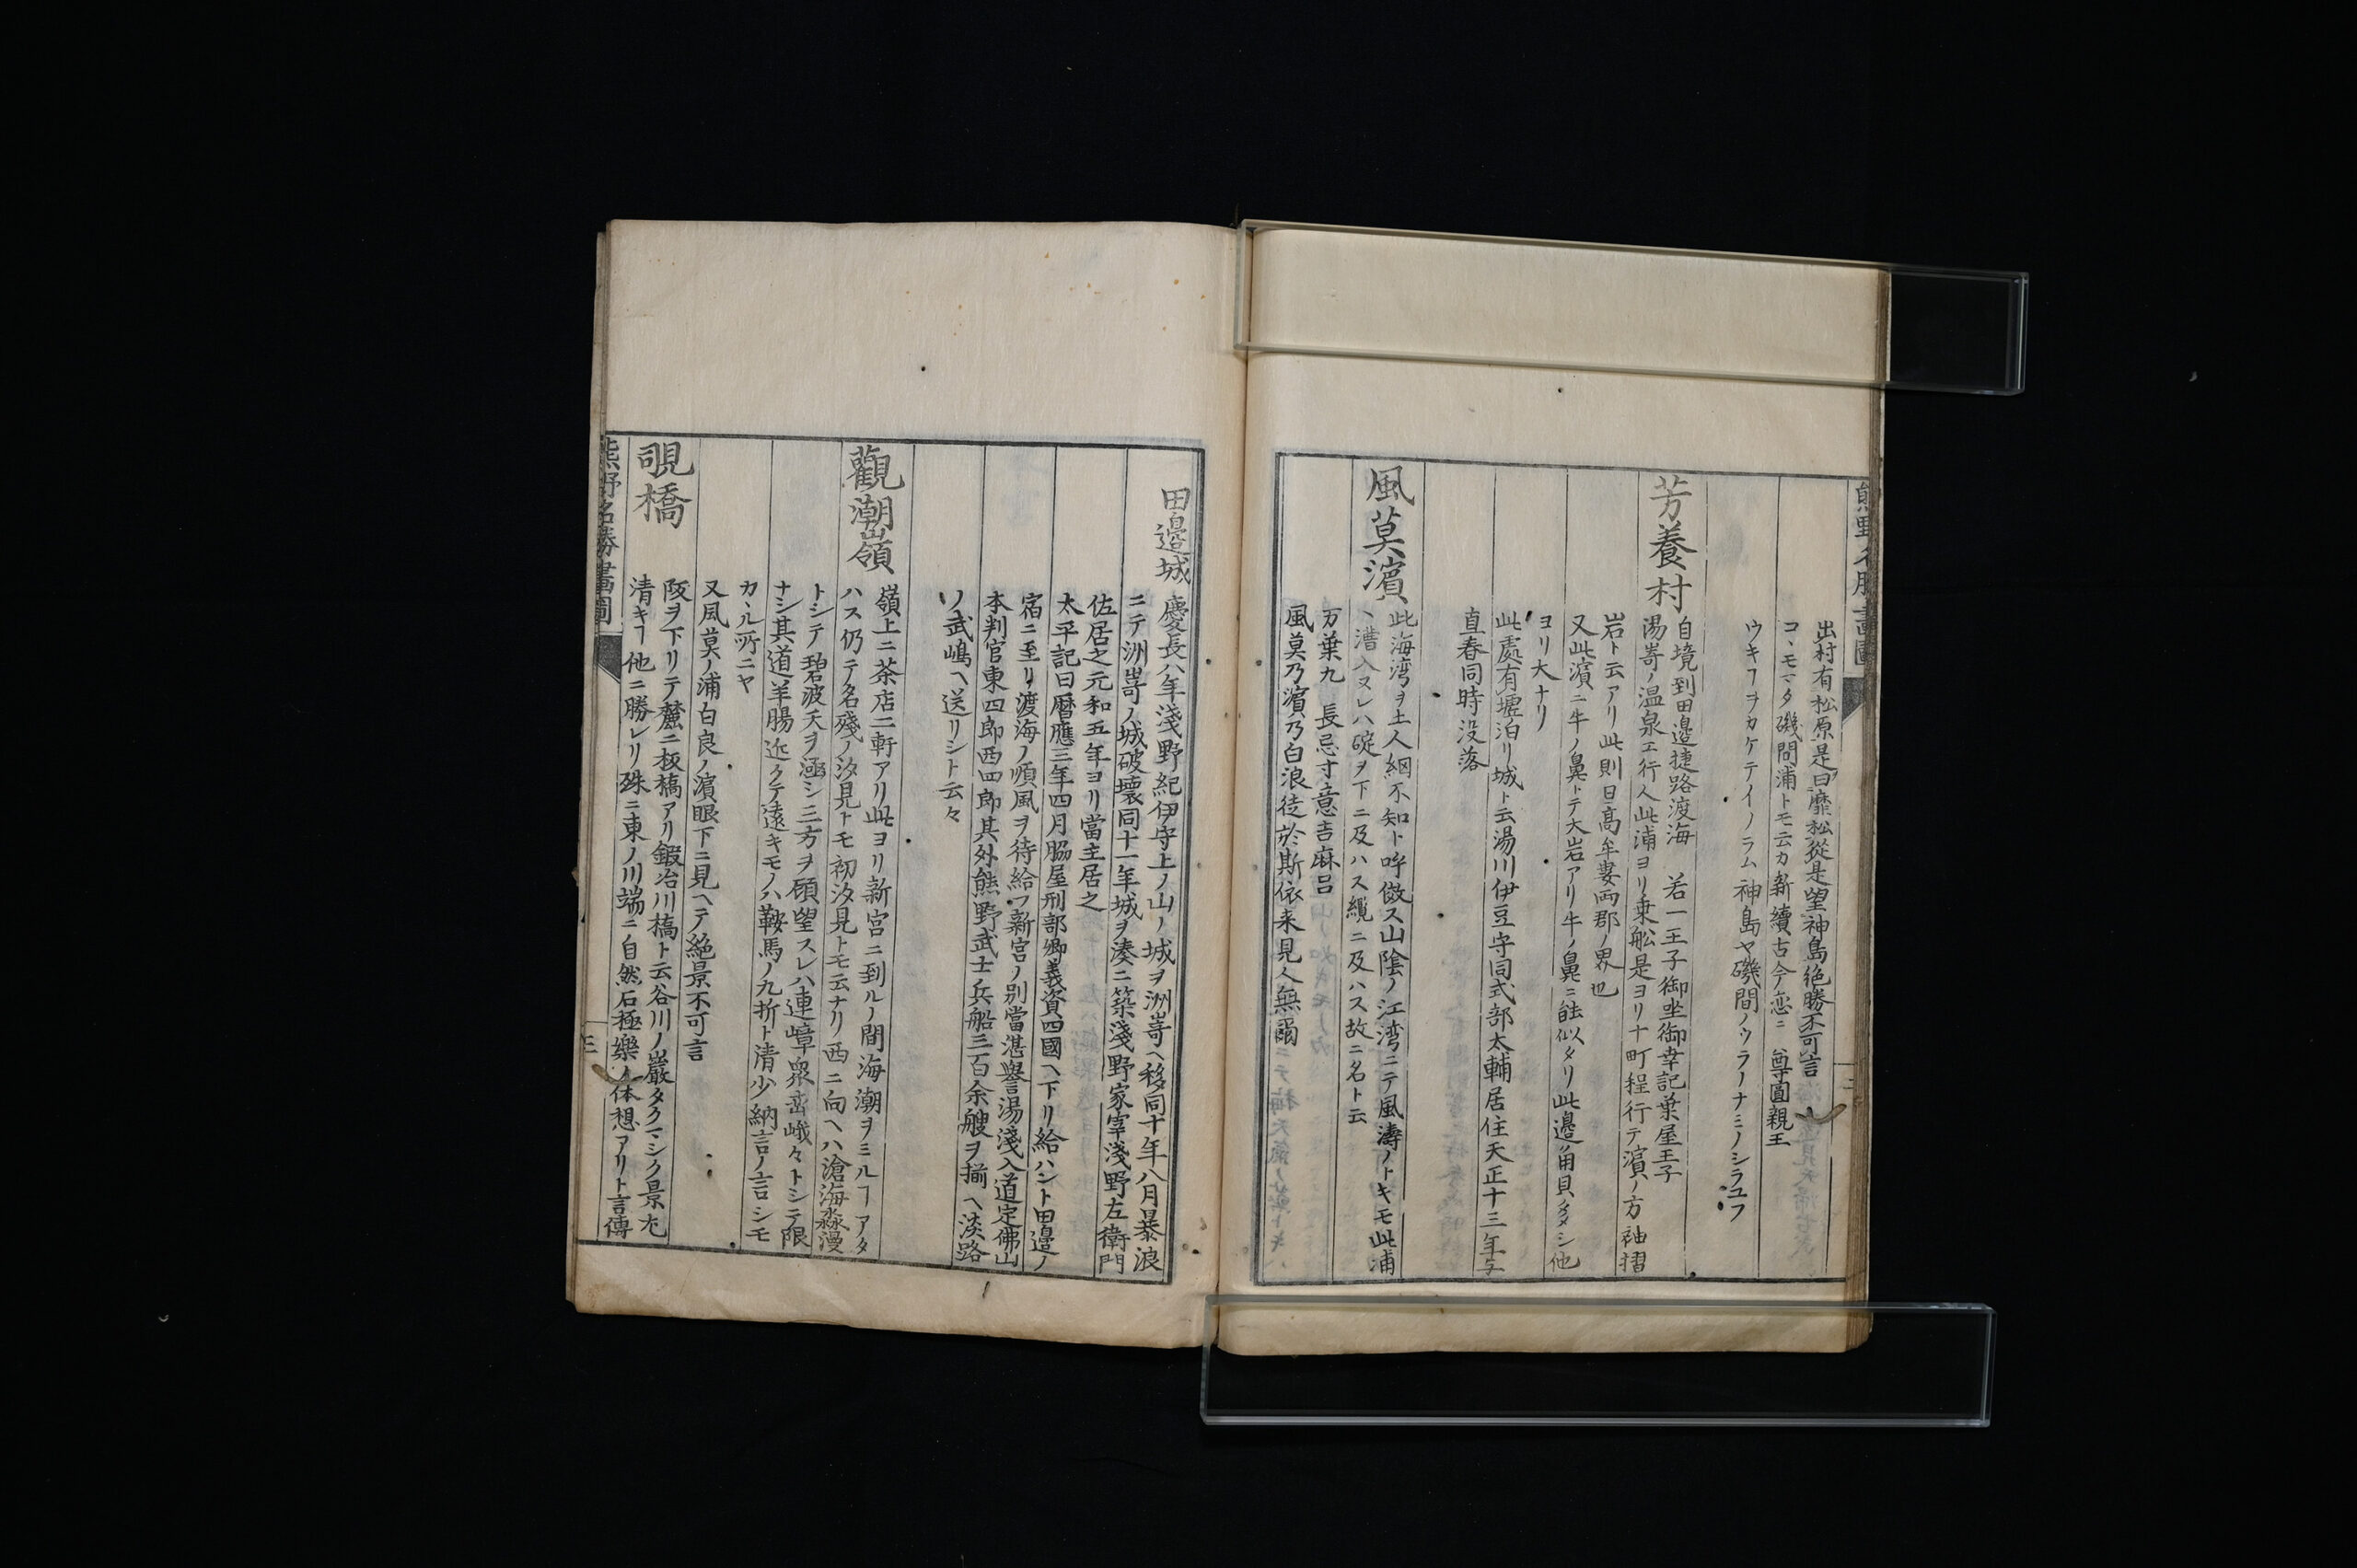 熊野名勝畫圖
出村有松原是曰靡松從是望神島絶勝不可言
コヽモマタ磯間浦トモ云カ新續古今恋ニ　尊圓親王
ウキヿヲカケテイノラム神島ヤ磯間ノウラノナミノシラユフ
芳養村
自境到田邉捷路渡海　若一王子御坐御幸記葉屋王子
湯嵜ノ温泉エ行人此浦ヨリ乗舩是ヨリ十町程行テ濵ノ方袖摺
岩ト云アリ此則日高牟婁両郡ノ界也
又此濵ニ牛ノ鼻トテ大岩アリ牛ノ鼻ニ能似タリ此邉角貝多シ他
ヨリ大ナリ
此處有壚泊リ城ト云湯川伊豆守同式部太輔居住天正十三年与
直春同時没落
風莫濵
此海湾ヲ土人綱不知ト呼傚ス山陰ノ江湾ニテ風濤ノトキモ此浦
ヽ漕入ヌレハ碇ヲ下ニ及ハス纜ニ及ハス故ニ名ト云
万葉九　長忌寸意吉麻呂
風莫乃濵乃白浪徒於斯依来見人無
田邉城
慶長八年淺野紀伊守上ノ山ノ城ヲ洲嵜ヘ移同十年八月暴浪
ニテ洲嵜ノ城破壊同十一年城ヲ湊ニ築淺野家宰淺野左衛門
佐居之元和五年ヨリ當主居之
太平記曰暦應三年四月脇屋刑部卿義資四國ヘ下リ給ハント田邉ノ
宿ニ至リ渡海ノ順風ヲ待給フ新宮ノ別當湛誉湯淺入道定佛山
本判官東四郎西四郎其外熊野武士兵船三百余艘ヲ揃ヘ淡路
ソ武嶋ヘ送リシト云々
觀潮嶺
嶺上ニ茶店二軒アリ此ヨリ新宮ニ到ルノ間海潮ヲミルヿアタ
ハス仍テ名殘ノ汐見トモ初汐見トモ云ナリ西ニ向ヘハ滄海淼漫
トシテ碧波天ヲ涵シ三方ヲ顧望スレハ連嶂衆峦峨々トシテ限
ナシ其道羊腸近クテ遠キモノハ鞍馬ノ九折ト清少納言ノ言シモ
カヽル所ニヤ
又風莫ノ浦白良ノ濵眼下ニ見ヘテ絶景不可言
覗橋
阪ヲ下リテ麓ニ板橋アリ鍜冶川橋ト云谷川ノ巌タクマシク景尤
清キヿ他ニ勝レリ殊ニ東ノ川端ニ自然石極樂ノ体想アリト言傳
熊野名勝畫圖
三